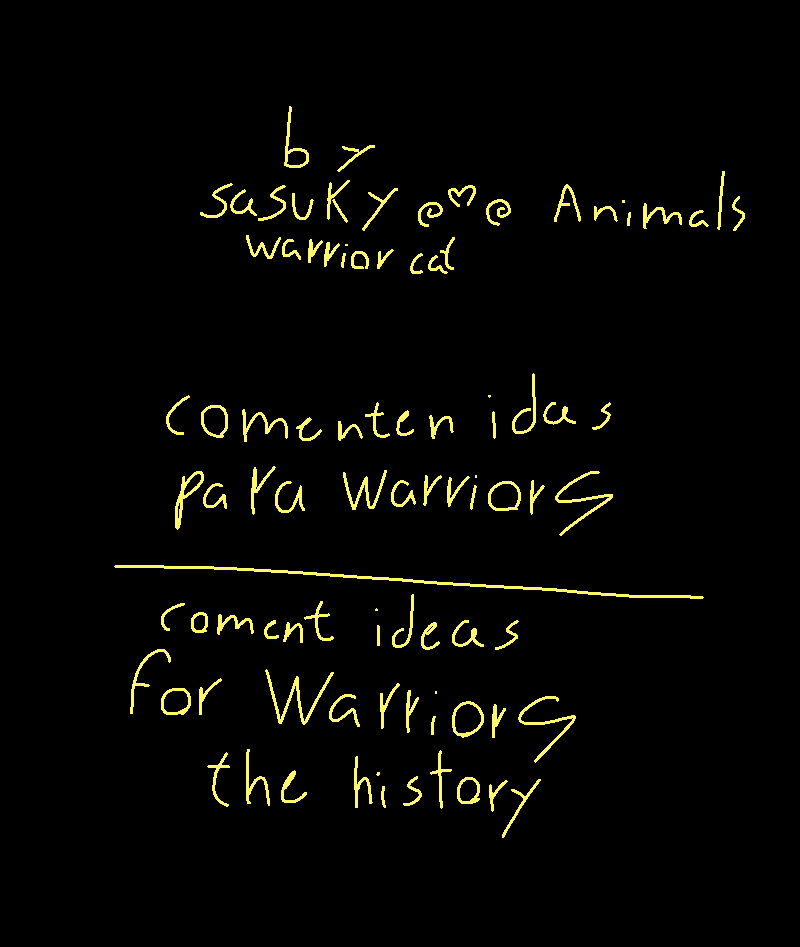 by
sasuky @♡@ Animals
warrior cat
comenten idas
para warriors
coment ideas
for Warriors
the history